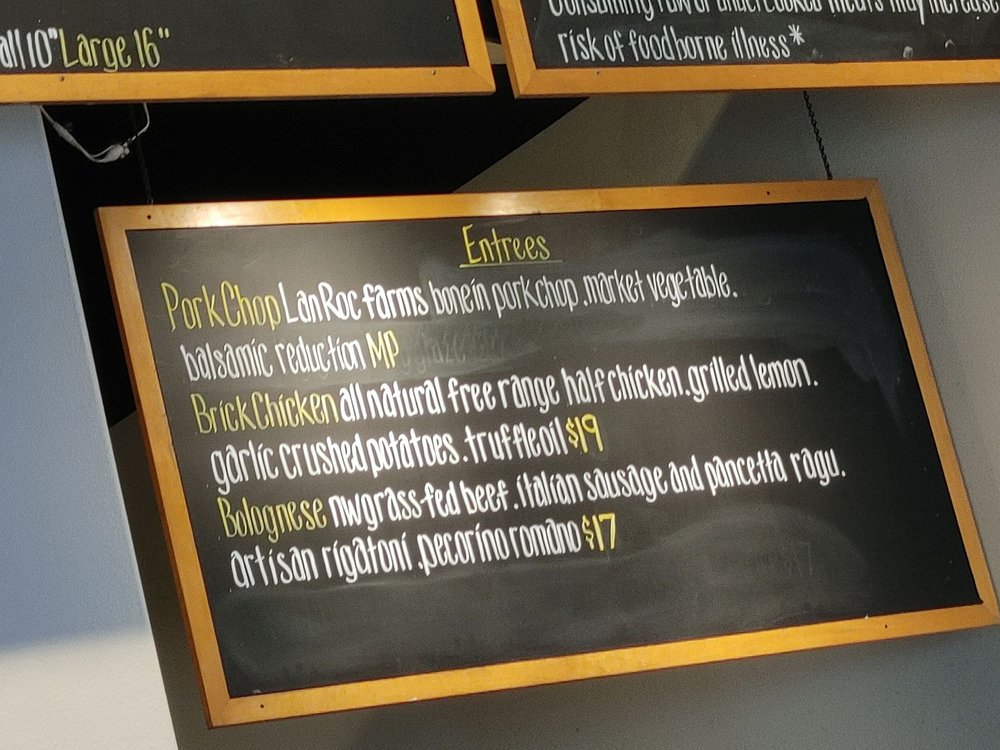 all 10" Large 16"
risk of foodborne illness*
Entrees
Pork Chop LanRoc farms bonein porkchop. market vegetable.
balsamic reduction MP
Brick Chicken all natural free range half chicken. grilled lemon.
garlic crushed potatoes. truffle oil $19
Bolognese nw grass-fed beef. italian sausage and pancetta ragu.
artisan rigatoni. pecorino romano $17